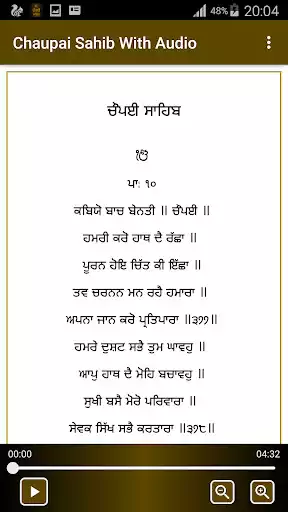 20:04
Chaupai Sahib With Audio
ਚੌਪਈ ਸਾਹਿਬ
ੴ
ਪਾ: ੧੦
ਕਬਿਯੋ ਬਾਚ ਬੇਨਤੀ ॥ ਚੌਪਈ ॥
ਹਮਰੀ ਕਰੋ ਹਾਥ ਦੈ ਰੱਛਾ ॥
ਪੂਰਨ ਹੋਇ ਚਿੱਤ ਕੀ ਇੱਛਾ ॥
ਤਵ ਚਰਨਨ ਮਨ ਰਹੈ ਹਮਾਰਾ ॥
ਅਪਨਾ ਜਾਨ ਕਰੋ ਪ੍ਰਤਿਪਾਰਾ ॥੩੭੭॥
ਹਮਰੇ ਦੁਸ਼ਟ ਸਭੈ ਤੁਮ ਘਾਵਹੁ ॥
ਆਪੁ ਹਾਥ ਦੈ ਮੋਹਿ ਬਚਾਵਹੁ ॥
ਸੁਖੀ ਬਸੈ ਮੋਰੋ ਪਰਿਵਾਰਾ ॥
ਸੇਵਕ ਸਿੱਖ ਸਭੈ ਕਰਤਾਰਾ ॥੩੭੮॥
00:00 04:32